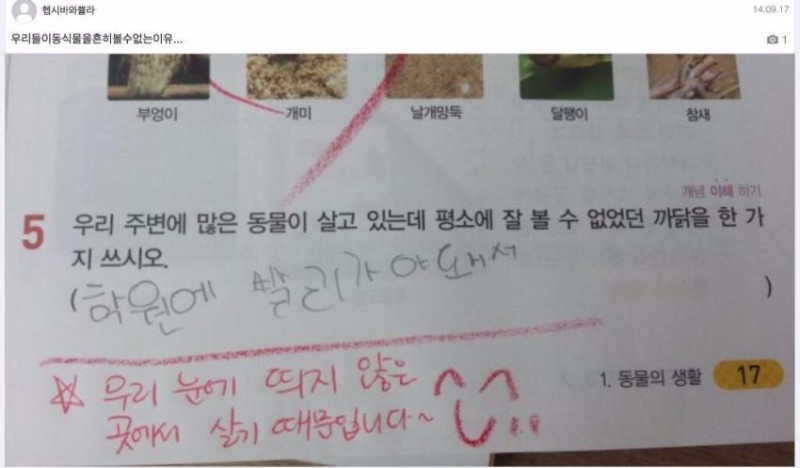 헵시바와쀨라
14.09.17
우리들이동식물을흔히볼수없는이유...
1
부엉이 개미 날개망둑 달팽이 참새
개념 이해 하기
5 우리 주변에 많은 동물이 살고 있는데 평소에 잘 볼 수 없었던 까닭을 한 가
지 쓰시오.
(학원에 빨리가야 돼서 )
☆ 우리 눈에 띄지 않은
곳에서 살기 때문입니다~
1. 동물의 생활 17